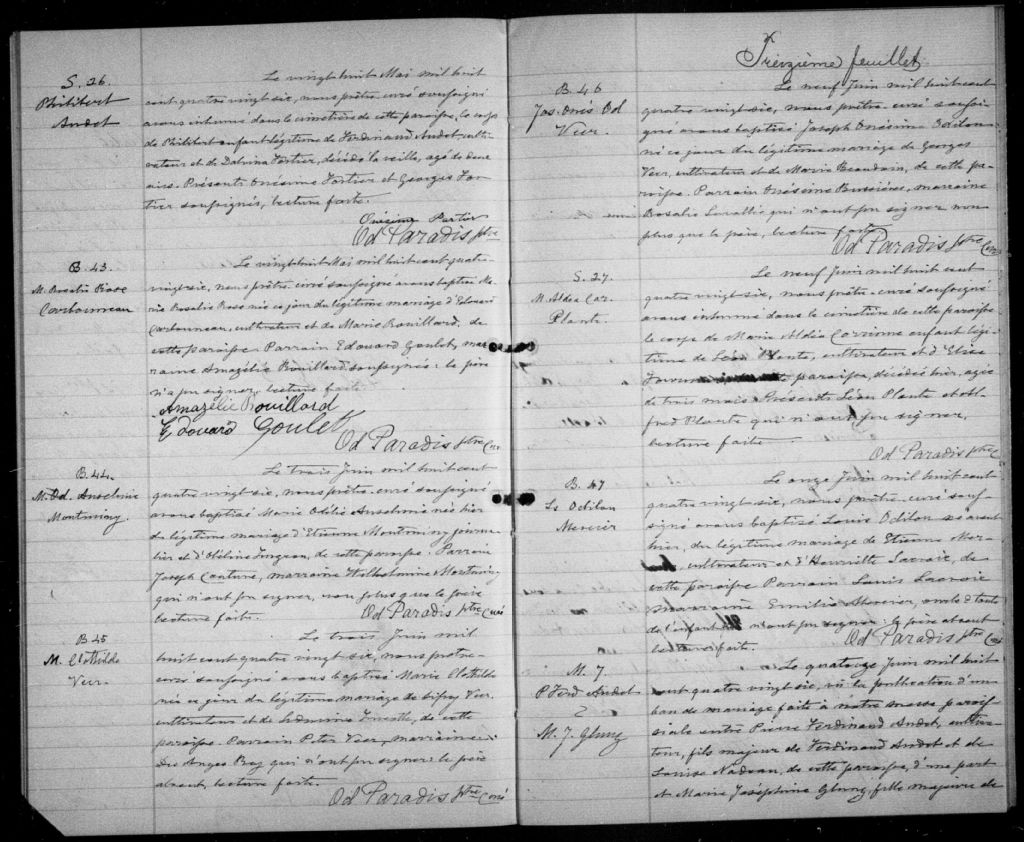 S. 26.
Philibert
Audet
Le vingt huit Mai mil huit
cent quatre vingt six, nous prêtre, curé soussigné
avons inhumé dans le cimetière de cette paroisse, le corps
de Philibert enfant légitime de Ferdinand Audet culti-
vateur et de Fortier, décédé la veille, agé de deux
ans. Présents Onésime Fortier et Georges For-
tier soussignés, lecture faite.
Onésime Fortier
Od Paradis ptre
B. 43.
M. Rosalie Rose
Carbonneau
Le vingt huit Mai mil huit cent quatre
vingt six, nous prêtre, curé soussigné avons baptisé Ma-
rie Rosalie Rose née ce jour du légitime mariage d'Edouard
Carbonneau, cultivateur et de Marie Rouillard, de
cette paroisse Parrain Edouard Goulet, mar-
raine Amazélie Rouillard soussignés: le père
n'a pu signer, lecture faite.
Amazélie Rouillard
Edouard Goulet
Od Paradis ptre Curé
B. 44.
M. Od. Anselmie
Montminy.
Le trois Juin mil huit cent
quatre vingt six, nous prêtre curé soussigné
avons baptisé Marie Odélie Anselmie née hier
du légitime mariage d'Etienne Montminy journa-
lier et d'Obéline de cette paroisse. Parrain
Joseph Couture, marraine Wilhelmine Montminy
qui n'ont pu signer, non plus que le père
lecture faite.
Od Paradis ptre Curé
B 45
M. Clothilde
Veer.
Le trois Juin mil
huit cent quatre vingt six, nous prêtre-
curé soussigné avons baptisé Marie Clothilde
née ce jour du légitime mariage de Veer,
cultivateur et de de cette
paroisse. Parrain Peter Veer, marraine
Des Anges Roy qui n'ont pu signer: le père
absent, lecture faite.
Od Paradis ptre Curé
Treizième feuillet
B. 46
Jos. Onés Od
Veer.
Le neuf Juin mil huit cent
quatre vingt six, nous prêtre-curé soussi-
gné avons baptisé Joseph Onésime Odilon
né ce jour du légitime mariage de Georges
Veer, cultivateur et de Marie Beaudoin, de cette pa-
roisse. Parrain Onésime Bussière, marraine
Rosalie qui n'ont pu signer non
plus que le père, lecture faite
Od Paradis ptre Curé
S. 27.
M. Aldéa Cor.
Plante.
Le neuf Juin mil huit cent
quatre vingt six, nous prêtre, curé soussigné
avons inhumé dans le cimetière de cette paroisse
le corps de Marie Aldéa Corrinne enfant légi-
time de Léon Plante, cultivateur et d'Elise
paroisse, décédée hier, agée
de trois mois. Présents Léon Plante et Al-
fred Plante qui n'ont pu signer,
lecture faite.
Od Paradis ptre C
B. 47
Ls Odilon
Mercier
Le onze Juin mil huit cent
quatre vingt six, nous prêtre-curé sous-
signé avons baptisé Louis Odilon né avant
hier, du légitime mariage de Etienne Mer-
cultivateur et d'Henriette Lavoie, de
cette paroisse Parrain Louis Lavoie
marraine Emilie Mercier, oncle & tante
de l'enfant n'ont pu signer: le père absent
lecture faite.
Od Paradis ptre Curé
M. 7
P. Ferd Audet
&
M. J.
Le quatorze Juin mil huit
cent quatre vingt six, vû la publication d'un
ban de mariage faite à notre messe parois-
siale entre Pierre Ferdinand Audet, cultiva-
teur, fils majeur de Ferdinand Audet et de
Louise Nadeau, de cette paroisse, d'une part
et Marie Joséphine fille majeure de